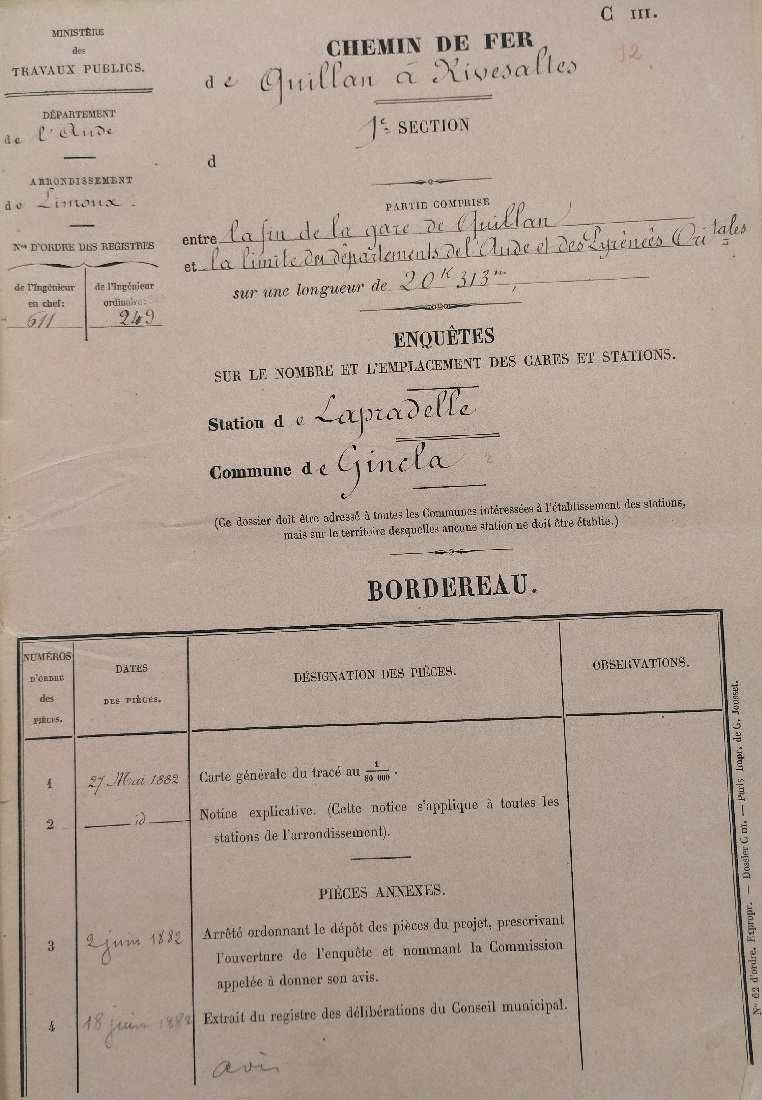 C III.
12.
MINISTÈRE
des
TRAVAUX PUBLICS.
DÉPARTEMENT
de l'Aude
ARRONDISSEMENT
de Limoux.
Nos D'ORDRE DES REGISTRES
de l'Ingénieur en chef:
611
de l'Ingénieur ordinaire:
249
CHEMIN DE FER
de Quillan à Rivesaltes
1e SECTION
d
PARTIE COMPRISE
entre la fin de la gare de Quillan
et la limite des départements de l'Aude et des Pyrénées Ortales
sur une longueur de 20K 313m,
ENQUÊTES
SUR LE NOMBRE ET L'EMPLACEMENT DES GARES ET STATIONS.
Station de Lapradelle
Commune de Gincla
(Ce dossier doit être adressé à toutes les Communes intéressées à l'établissement des stations,
mais sur le territoire desquelles aucune station ne doit être établie.)
BORDEREAU.
NUMÉROS D'ORDRE des PIÈCES.
DATES DES PIÈCES.
DÉSIGNATION DES PIÈCES.
OBSERVATIONS.
1 27 Mai 1882 Carte générale du tracé au 1/80 000.
2 id Notice explicative. (Cette notice s'applique à toutes les
stations de l'arrondissement).
PIÈCES ANNEXES.
3 2 juin 1882 Arrêté ordonnant le dépôt des pièces du projet, prescrivant
l'ouverture de l'enquête et nommant la Commission
appelée à donner son avis.
4 18 juin 1882 Extrait du registre des délibérations du Conseil municipal.
avis
No 62 d'ordre. Expropr. — Dossier C III. — Paris Impr. de G. Jousset.